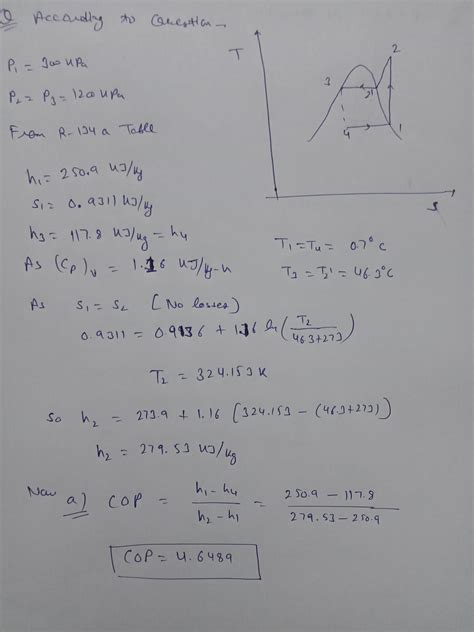 Q According to Question -
P₁ = 300 kPa
P₂ = P₃ = 1200 kPa
From R-134 a Table
h₁ = 250.9 kJ/kg
s₁ = 0.9311 kJ/kg
h₃ = 117.8 kJ/kg = h₄
As (Cp)v = 1.16 kJ/kg-k
T
2
3
2'
4
1
s
T₁ = T₄ = 0.7°c
T₃ = T₂' = 46.3°c
As s₁ = s₂ [No losses]
0.9311 = 0.9136 + 1.16 ln (T₂/46.3+273)
T₂ = 324.153 K
So h₂ = 273.9 + 1.16 [324.153 - (46.3+273)]
h₂ = 279.53 kJ/kg
Now a) COP = h₁ - h₄/h₂ - h₁ = 250.9 - 117.8/279.53 - 250.9
COP = 4.6489